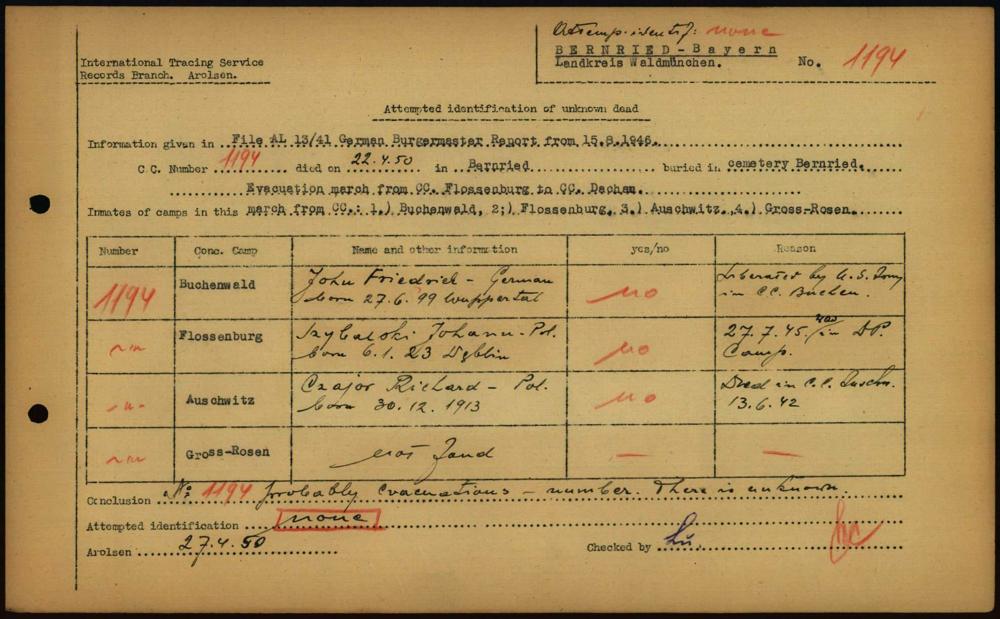 Attemp. identif: none
BERNRIED - Bayern
Landkreis Waldmünchen. No. 1194
International Tracing Service
Records Branch. Arolsen.
Attempted identification of unknown dead
Information given in ..File AL 13/41 German Burgermaster Report from 15.8.1946.
C.C. Number 1194 died on 22.4.50 in Bernried buried in cemetery Bernried.
Evacuation march from CC. Flossenburg to CC. Dachau.
Inmates of camps in this march from CC.: 1.) Buchenwald, 2;) Flossenburg, 3.) Auschwitz., 4.) Gross-Rosen.
Number Conc. Camp Name and other information yes/no Reason
1194 Buchenwald John Friedrich - German no Liberated by U.S. Army
born 27.6.99 Wuppertal in CC. Buchen.
-"- Flossenburg Johann - Pol. no 27.7.45 was in DP.
born 6.1.23 Dęblin Camp.
-"- Auschwitz Czajor Richard - Pol. no Died in C.C. Auschw.
born 30.12.1913 13.6.42
-"- Gross-Rosen — —
Conclusion No 1194 probably evacuations - number. There is unknown.
Attempted identification none
Arolsen 27.4.50 Checked by Lü.